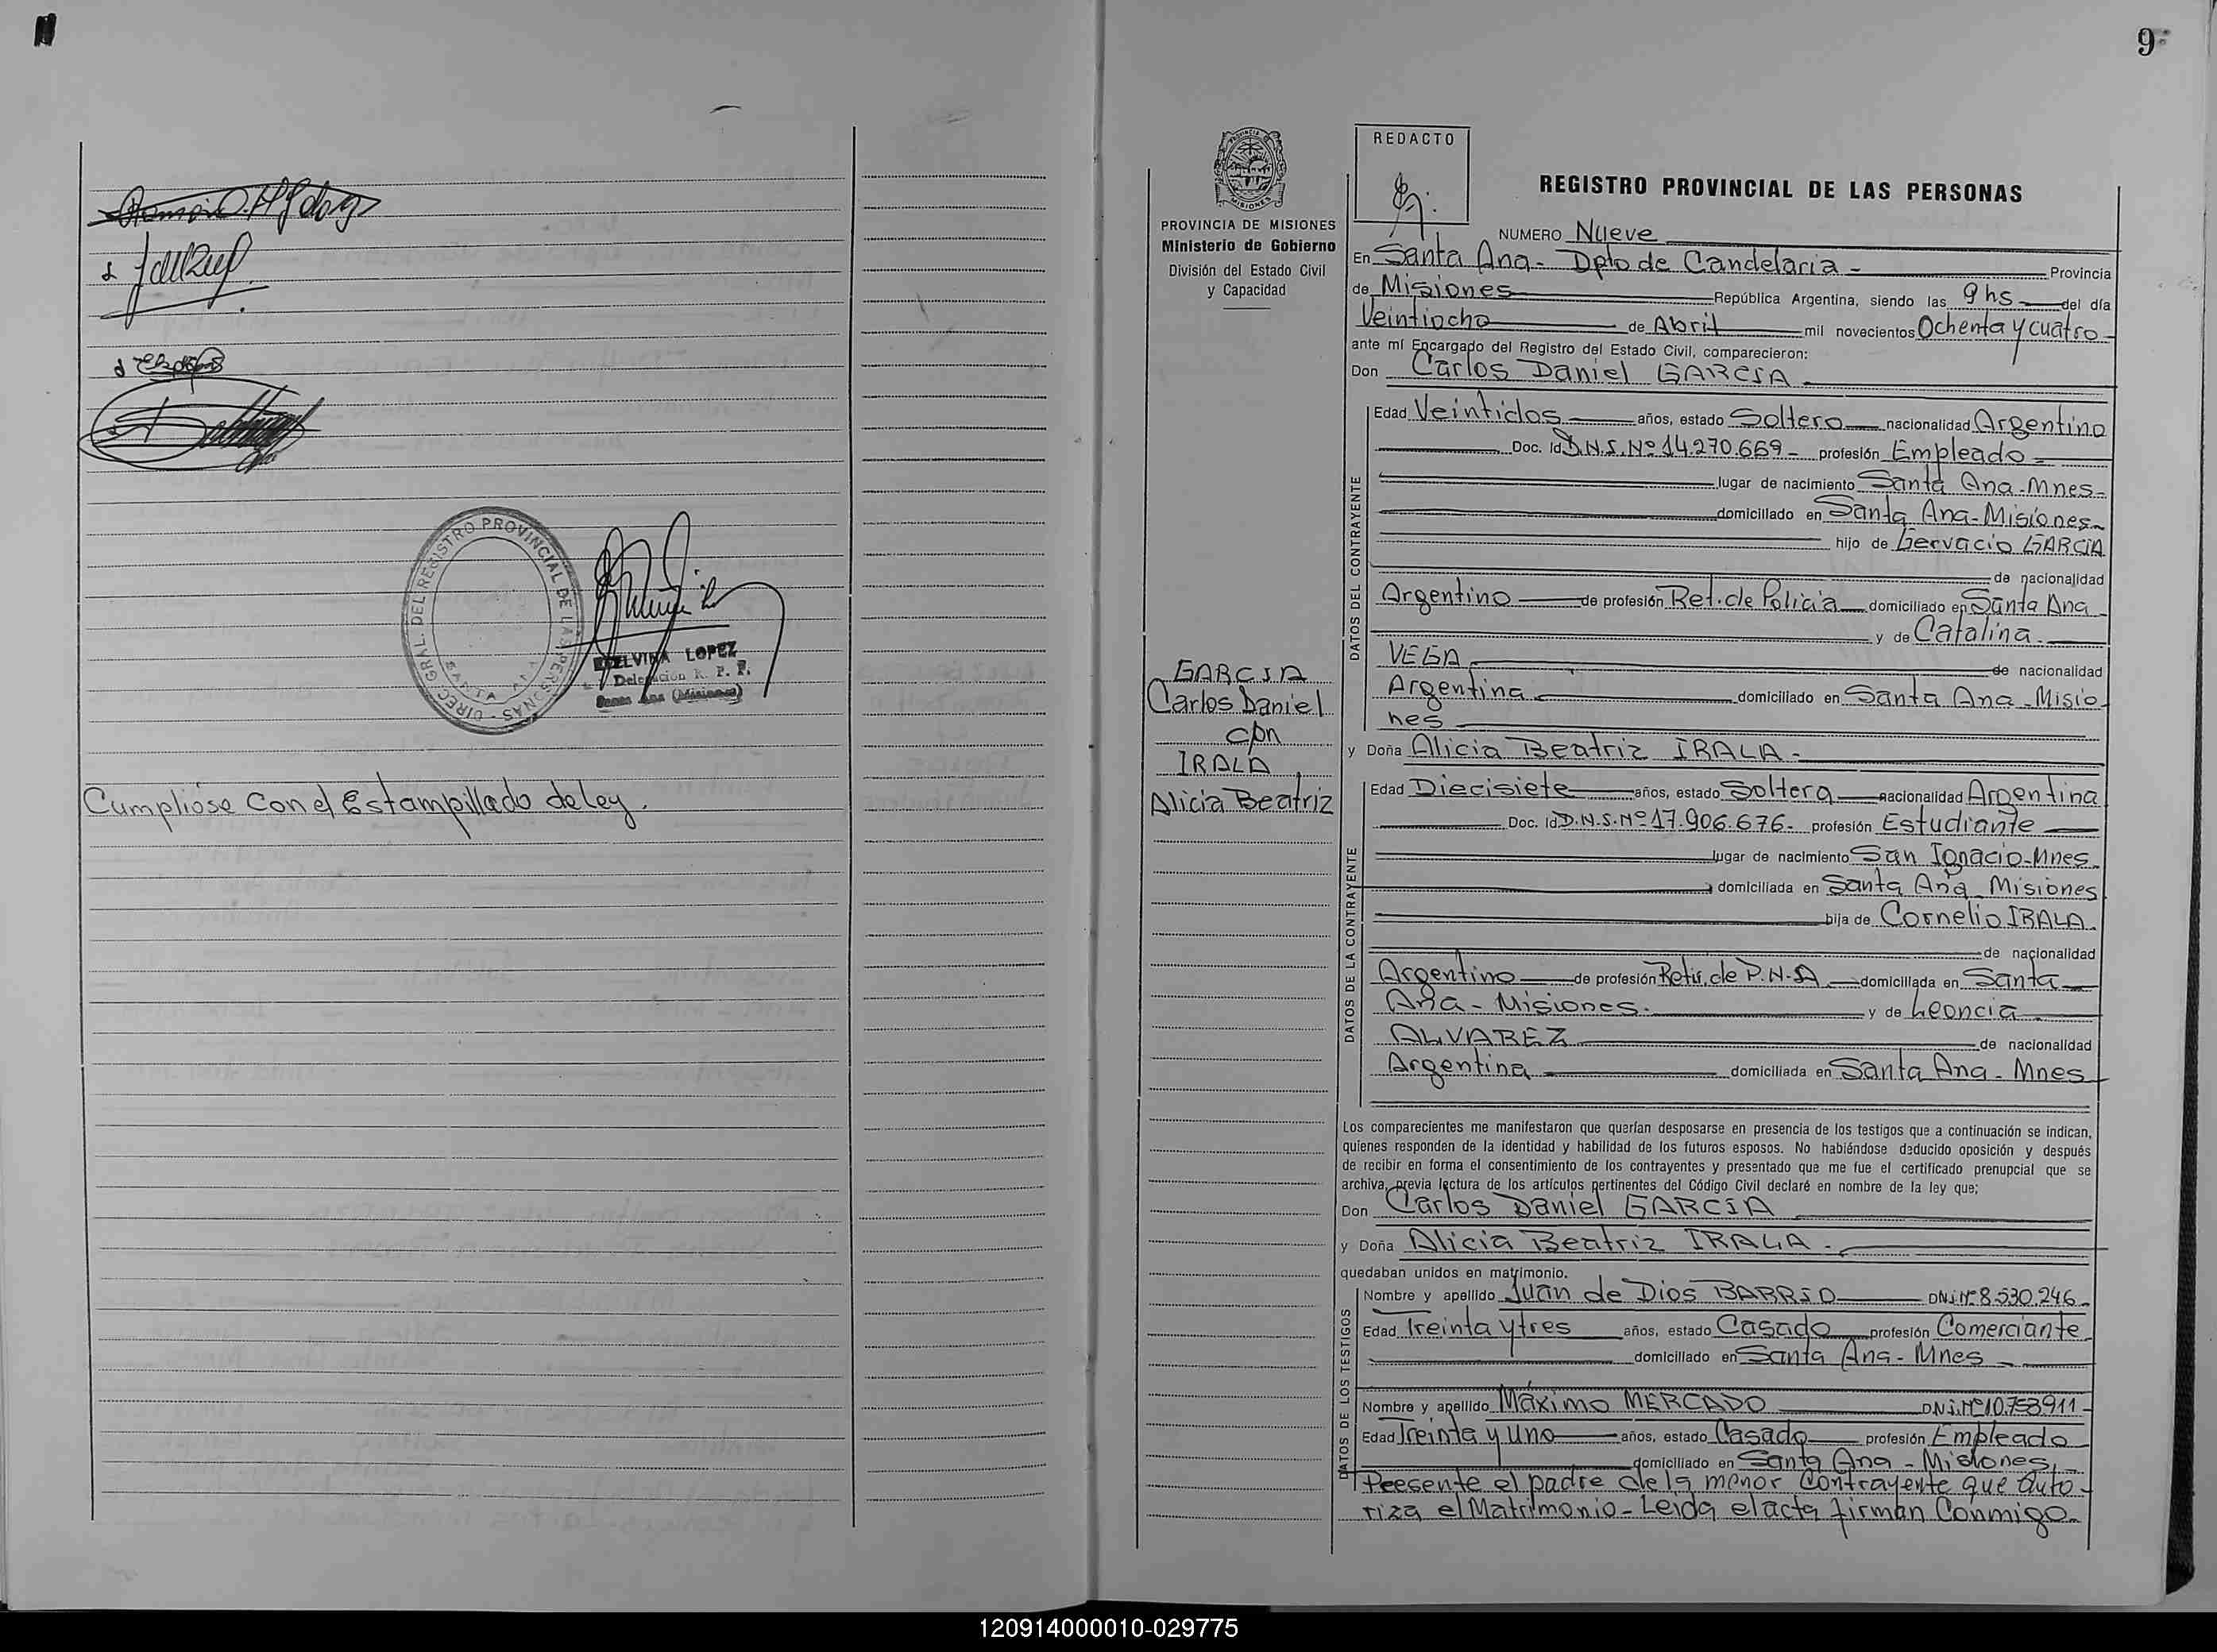 DIREC. GRAL. DEL REGISTRO PROVINCIAL DE LAS PERSONAS
SANTA ANA
ELVINA LOPEZ
Delegación R. P. P.
Santa Ana (Misiones)
Cumplióse con el Estampillado de ley.
9
PROVINCIA DE MISIONES
Ministerio de Gobierno
División del Estado Civil
y Capacidad
GARCIA
Carlos Daniel
con
IRALA
Alicia Beatriz
REDACTO
REGISTRO PROVINCIAL DE LAS PERSONAS
NUMERO Nueve
En Santa Ana - Dpto de Candelaria - Provincia
de Misiones República Argentina, siendo las 9 hs del día
Veintiocho de Abril mil novecientos Ochenta y cuatro
ante mí Encargado del Registro del Estado Civil, comparecieron:
Don Carlos Daniel GARCIA
DATOS DEL CONTRAYENTE
Edad Veintidos años, estado Soltero nacionalidad Argentino
Doc. Id D.N.I. Nº 14.270.669 - profesión Empleado
lugar de nacimiento Santa Ana - Mnes -
domiciliado en Santa Ana - Misiones
hijo de Gervacio GARCIA
de nacionalidad
Argentino de profesión Ret. de Policia domiciliado en Santa Ana
y de Catalina
VEGA de nacionalidad
Argentina domiciliado en Santa Ana - Misio
nes
y Doña Alicia Beatriz IRALA -
DATOS DE LA CONTRAYENTE
Edad Diecisiete años, estado Soltera nacionalidad Argentina
Doc. Id D.N.I. Nº 17.906.676 - profesión Estudiante
lugar de nacimiento San Ignacio - Mnes
domiciliada en Santa Ana Misiones
hija de Cornelio IRALA
de nacionalidad
Argentino de profesión Retir. de P.N.A domiciliada en Santa
Ana - Misiones. y de Leoncia
ALVAREZ de nacionalidad
Argentina domiciliada en Santa Ana - Mnes
Los comparecientes me manifestaron que querían desposarse en presencia de los testigos que a continuación se indican,
quienes responden de la identidad y habilidad de los futuros esposos. No habiéndose deducido oposición y después
de recibir en forma el consentimiento de los contrayentes y presentado que me fue el certificado prenupcial que se
archiva, previa lectura de los artículos pertinentes del Código Civil declaré en nombre de la ley que;
Don Carlos Daniel GARCIA
y Doña Alicia Beatriz IRALA -
quedaban unidos en matrimonio.
DATOS DE LOS TESTIGOS
Nombre y apellido Juan de Dios BARRIO DNI Nº 8.530.246
Edad Treinta y tres años, estado Casado profesión Comerciante
domiciliado en Santa Ana - Mnes
Nombre y apellido Máximo MERCADO DNI. Nº 10.753911
Edad Treinta y uno años, estado Casado profesión Empleado
domiciliado en Santa Ana - Misiones
Peesente el padre de la menor Contrayente que auto
riza el Matrimonio - Leida el acta firman Conmigo
120914000010-029775